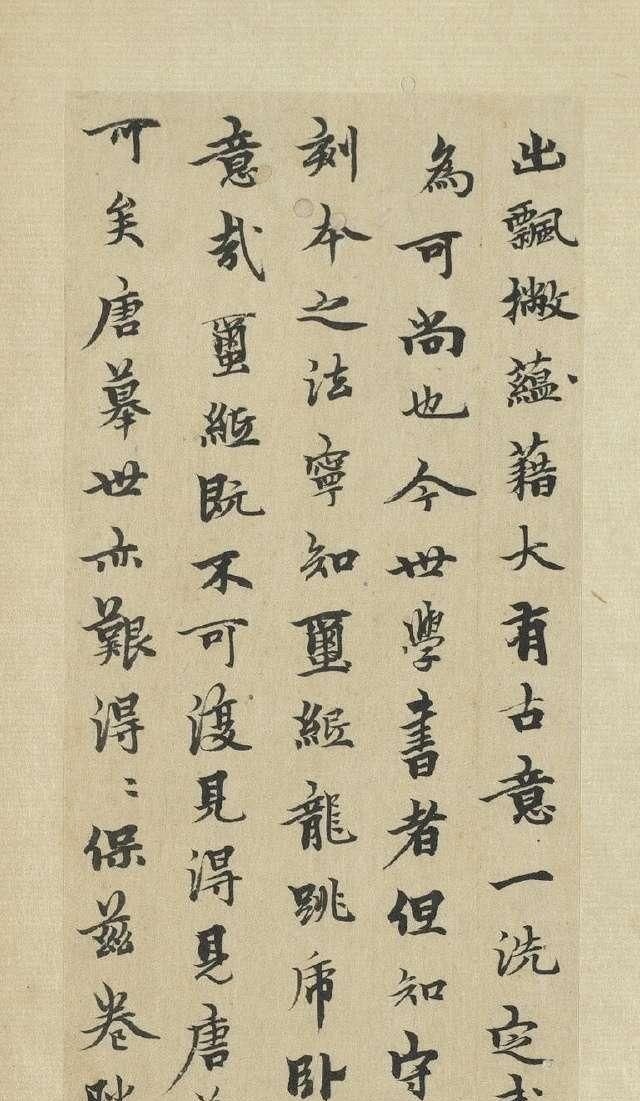 出飄撇蘊藉大有古意一洗定武
為可尚也今世學書者但知守
刻本之法寧知璽紙龍跳虎臥
意哉璽紙既不可復見得見唐
可矣唐摹世亦艱得〻保茲卷